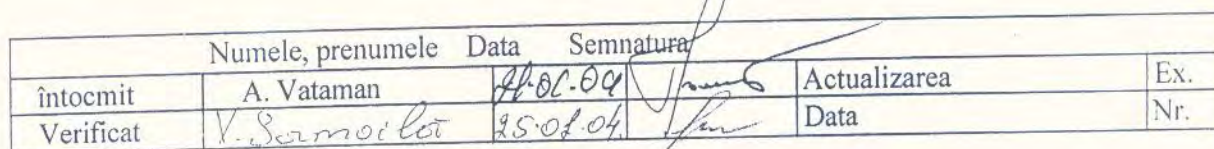 Numele, prenumele Data Semnatura
întocmit A. Vataman Actualizarea Ex.
Verificat V. Samoilov Data Nr.